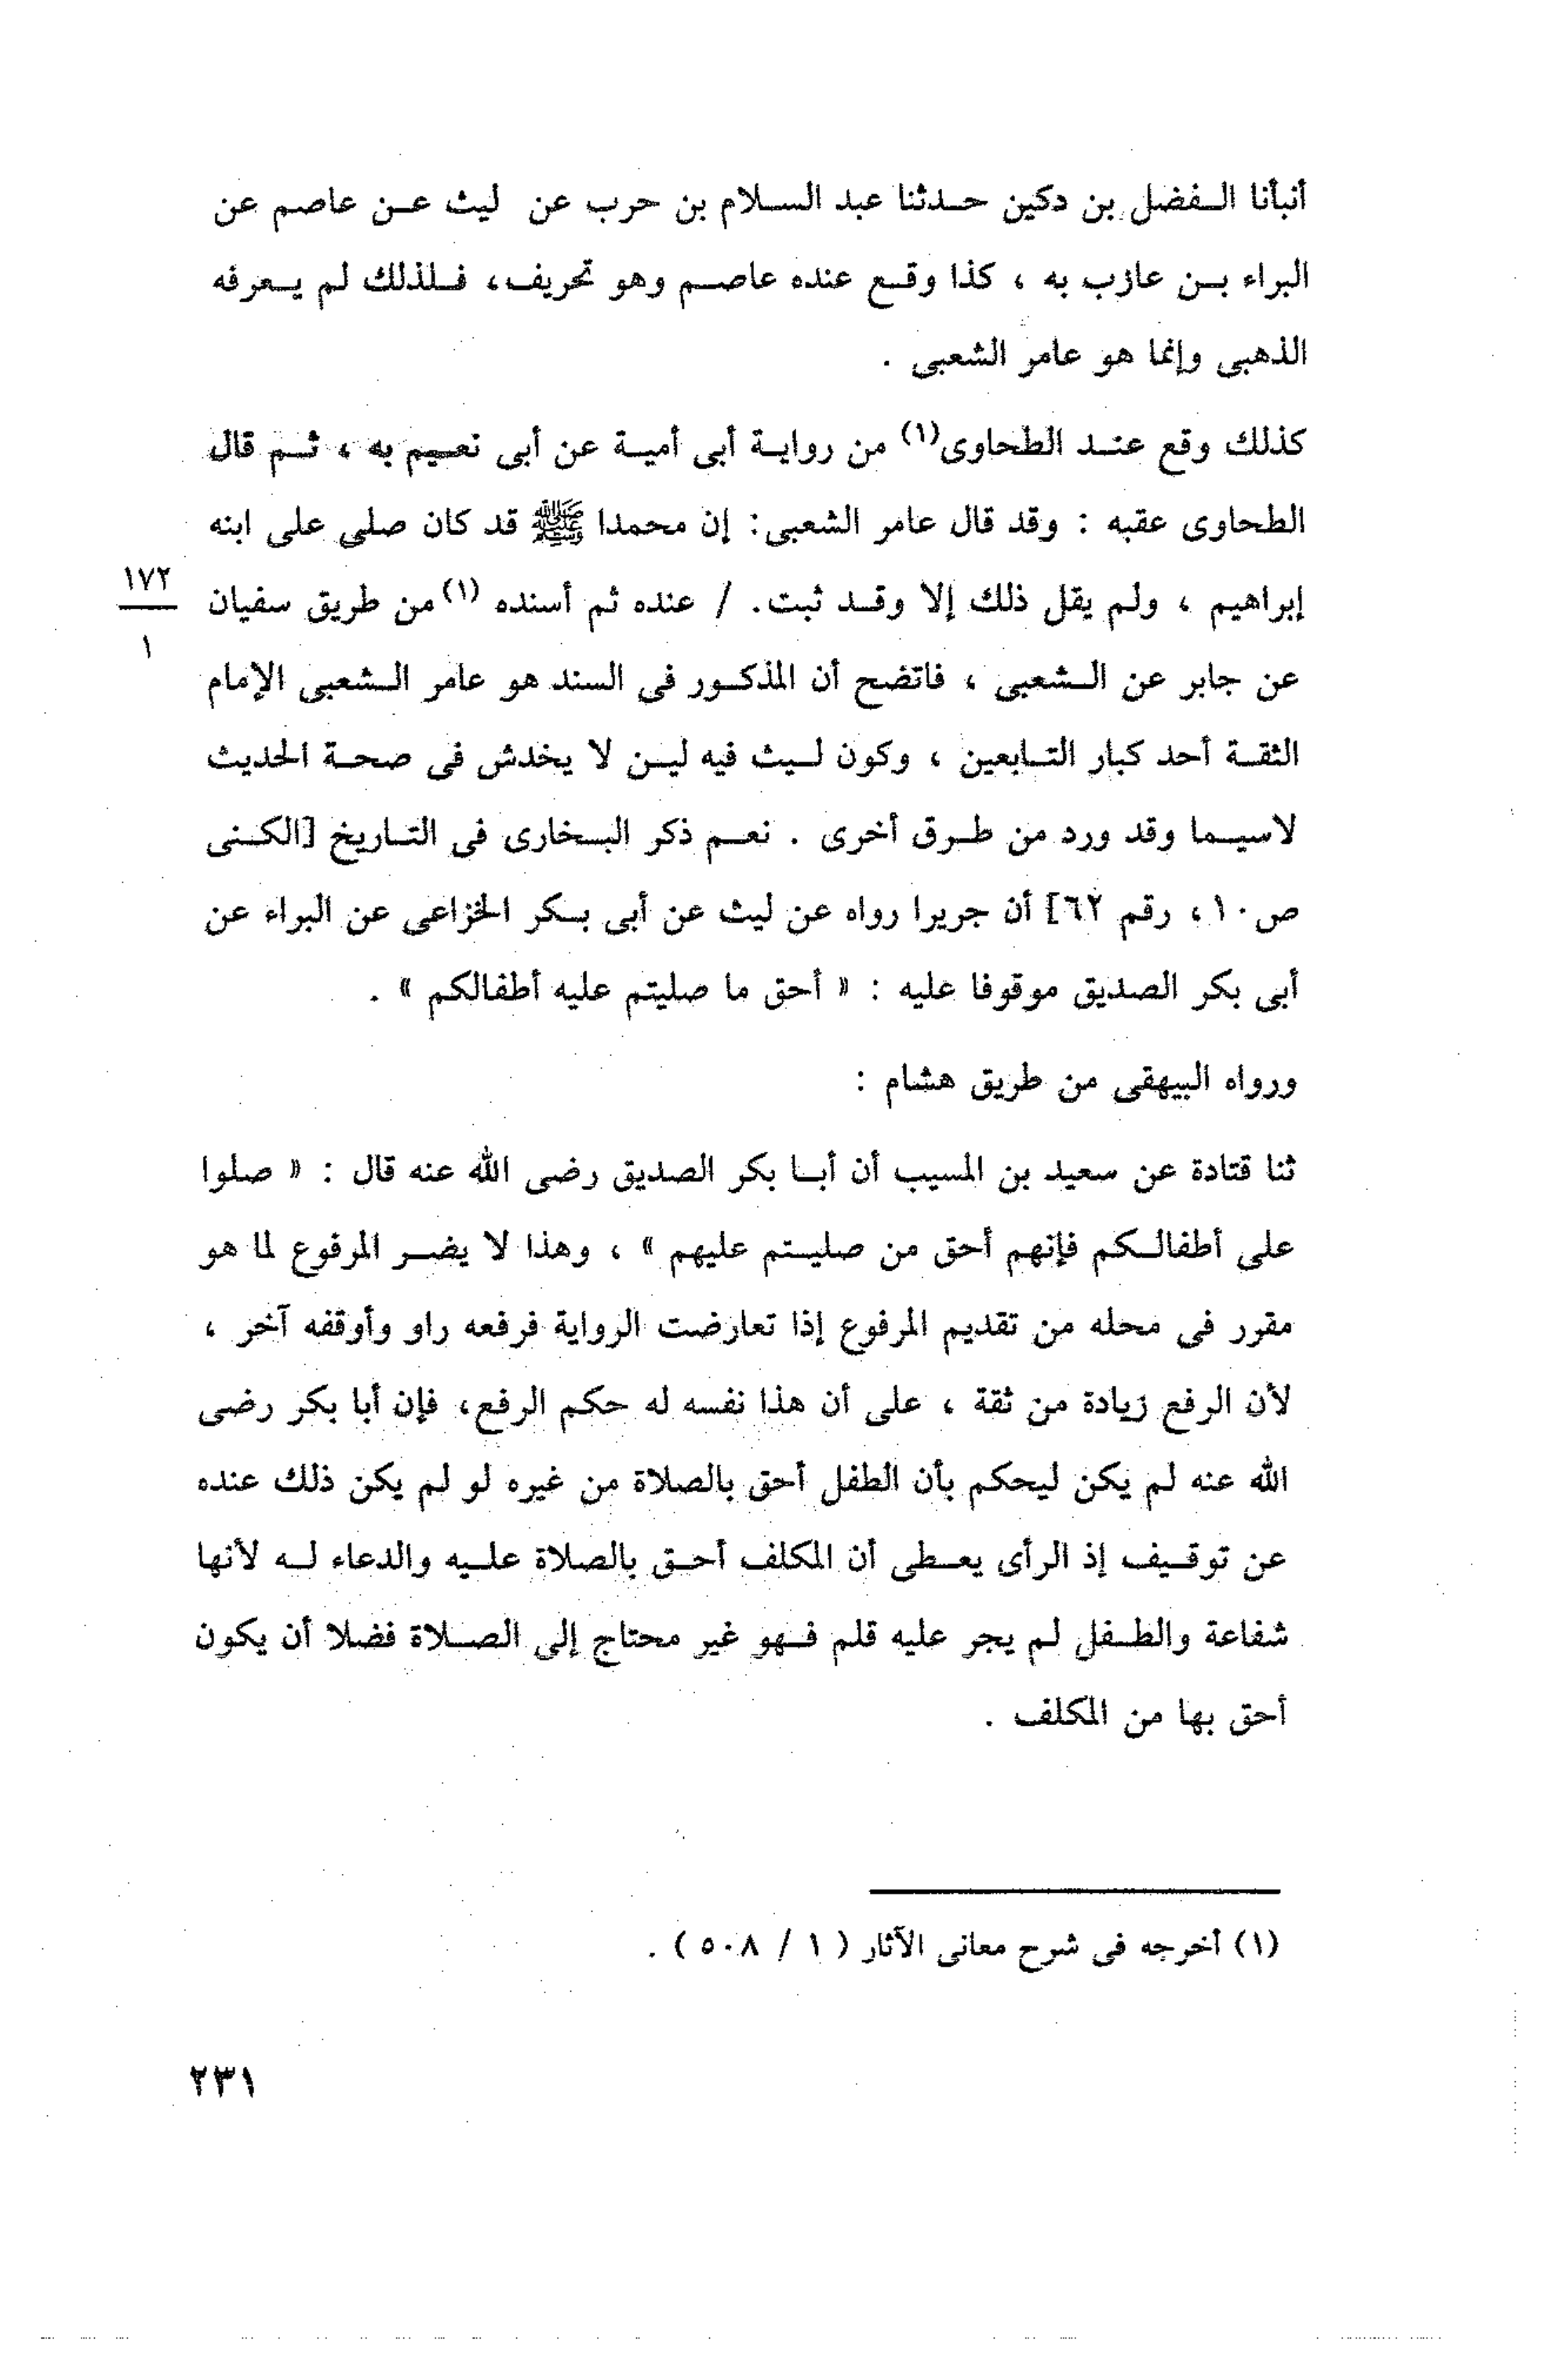 أنبأنا الفضل بن دكين حدثنا عبد السلام بن حرب عن ليث عن عاصم عن
البراء بن عازب به ، كذا وقع عنده عاصم وهو تحريف، فلذلك لم يعرفه
الذهبى وإنما هو عامر الشعبى .
كذلك وقع عند الطحاوى(١) من رواية أبى أمية عن أبى نعيم به ، ثم قال
الطحاوى عقبه : وقد قال عامر الشعبى: إن محمدا ﷺ قد كان صلى على ابنه
إبراهيم ، ولم يقل ذلك إلا وقد ثبت. / عنده ثم أسنده (١) من طريق سفيان
١٧٢
١
عن جابر عن الشعبى ، فاتضح أن المذكور فى السند هو عامر الشعبى الإمام
الثقة أحد كبار التابعين ، وكون ليث فيه لين لا يخدش فى صحة الحديث
لاسيما وقد ورد من طرق أخرى . نعم ذكر البخارى فى التاريخ [الكنى
ص١٠، رقم ٦٢] أن جريرا رواه عن ليث عن أبى بكر الخزاعى عن البراء عن
أبى بكر الصديق موقوفا عليه : « أحق ما صليتم عليه أطفالكم » .
ورواه البيهقى من طريق هشام :
ثنا قتادة عن سعيد بن المسيب أن أبا بكر الصديق رضى الله عنه قال : « صلوا
على أطفالكم فإنهم أحق من صليتم عليهم » ، وهذا لا يضر المرفوع لما هو
مقرر فى محله من تقديم المرفوع إذا تعارضت الرواية فرفعه راو وأوقفه آخر ،
لأن الرفع زيادة من ثقة ، على أن هذا نفسه له حكم الرفع، فإن أبا بكر رضى
الله عنه لم يكن ليحكم بأن الطفل أحق بالصلاة من غيره لو لم يكن ذلك عنده
عن توقيف إذ الرأى يعطى أن المكلف أحق بالصلاة عليه والدعاء له لأنها
شفاعة والطفل لم يجر عليه قلم فهو غير محتاج إلى الصلاة فضلا أن يكون
أحق بها من المكلف .
(١) أخرجه فى شرح معانى الآثار ( ١ / ٥٠٨ ) .
٢٣١